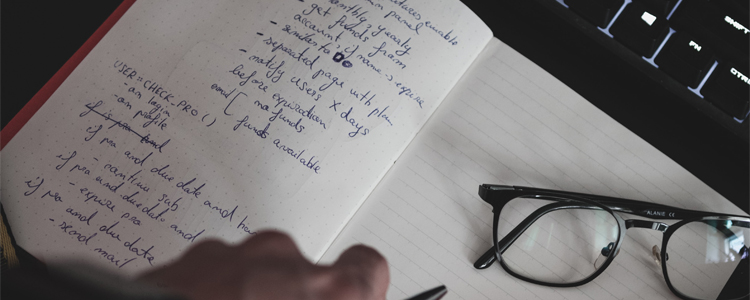 panel
- monthly & yearly
- get funds from
account, if name is expire
- similar to DO
- separated page with plan
- notify users X days
before expiration
email [ no funds
funds available
USER::CHECK_PRO()
- on login
- on profile
if pro and due date and
- continue sub
if pro and due date and
- expire pro
if pro and due date
- send mail
ALANIE
SHIFT
FN
CTRL